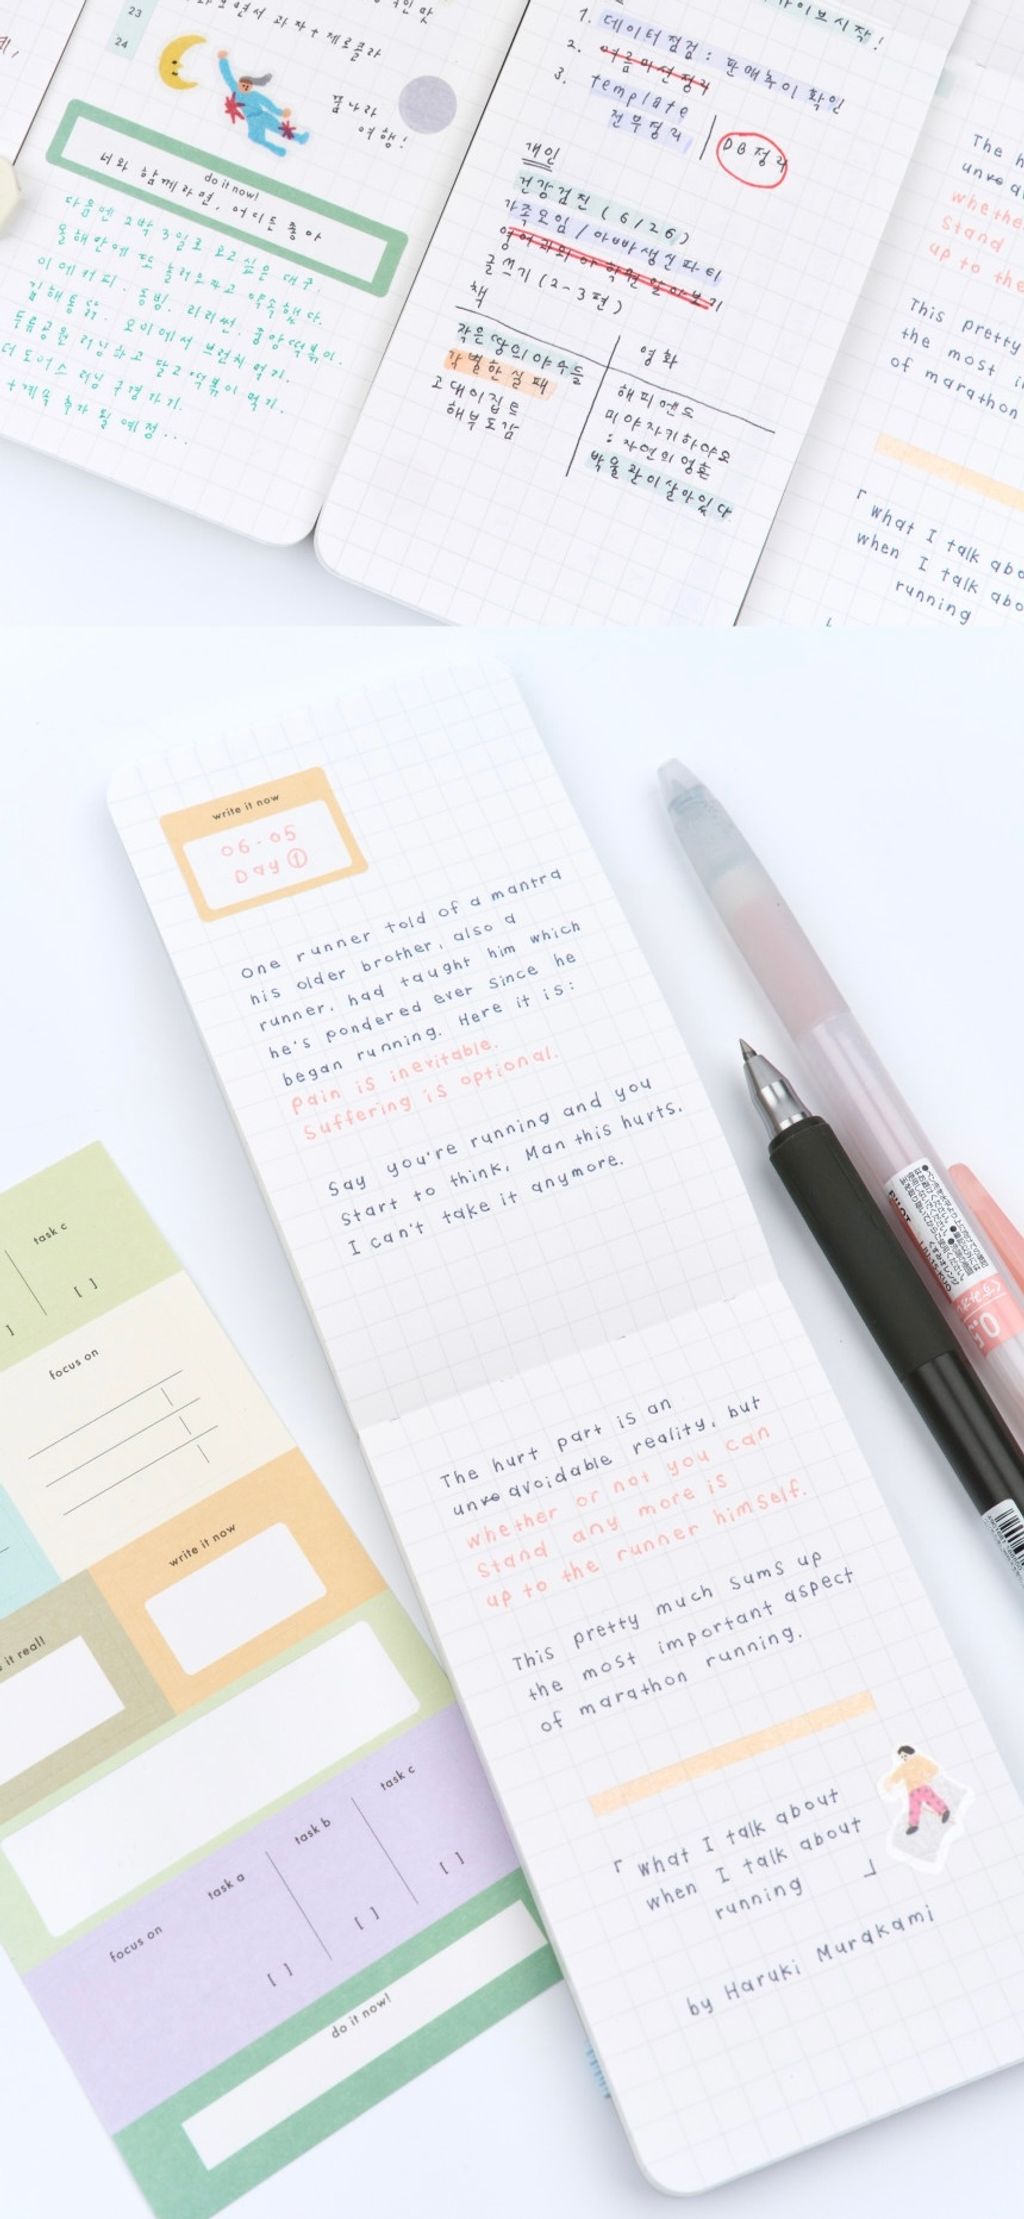 23
24
꿈나라
여행!
do it now!
너와 함께라면, 어디든 좋아
다음엔 2박 3일로 오고 싶은 대구.
올해 안에 또 놀러오자고 약속했다.
이에커피. 동빙. 리리썬. 중앙떡볶이.
김해통닭. 오비에서 브런치 먹기.
두류공원 러닝하고 달고떡볶이 먹기.
더 도어스 러닝 구경가기.
+ 계속 추가 될 예정...
1. 데이터점검 : 판매추이 확인
2. 여름미션정리
3. template
전부정리
DB정리
개인
건강검진 (6/26)
가족모임 / 아빠생신파티
영어과외 or 학원 알아보기
글쓰기 (2-3편)
책
작은 땅의 야수들
각별한 실패
고대이집트
해부도감
영화
해피엔드
미야자키하야오
: 자연의영혼
박물관이살아있다
The h
unve
whethe
Stand
up to the
This pretty
the most i
of marathon
「 what I talk abo
when I talk abo
running
write it now
06.05
Day ①
One runner told of a mantra
his older brother, also a
runner, had taught him which
he's pondered ever since he
began running. Here it is:
Pain is inevitable.
Suffering is optional.
Say you're running and you
start to think, Man this hurts.
I can't take it anymore.
The hurt part is an
unve avoidable reality, but
whether or not you can
stand any more is
up to the runner himself.
This pretty much sums up
the most important aspect
of marathon running.
「 what I talk about
when I talk about
running 」
by Haruki Murakami
task c
[ ]
focus on
write it now
it real!
focus on
task a
[ ]
task b
[ ]
task c
[ ]
do it now!
PILOT